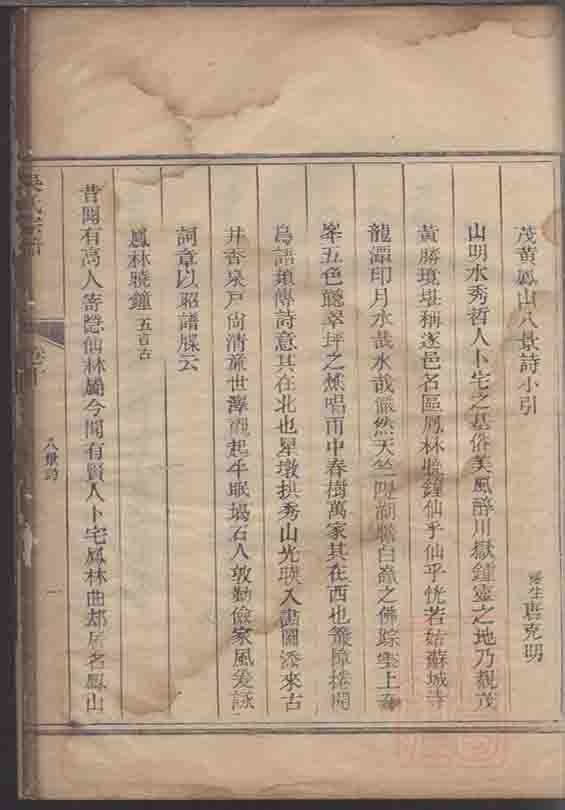 茂黃鳳山八景詩小引
庠生袁克明
山明水秀哲人卜宅之基俗美風醇川嶽鍾靈之地乃觀茂
黃勝境堪稱遂邑名區鳳林曉鐘仙乎仙乎恍若姑蘇城寺
龍潭印月水哉水哉儼然天竺湖白之佛踪雲上
峯五色聽翠坪之樵唱雨中春樹萬家其在西也簾障捲開
鳥語頻傳詩意其在北也星墩拱秀山光映入畫圖添來古
井香泉戸尚清廉世澤起乎眠塢石人敦勤儉家風爰詠
詞章以昭譜牒云
鳳林曉鐘 五言古
昔聞有高人寄隱仙林屬今聞有賢人卜宅鳳林曲居名鳳山
吳氏宗譜
卷
八景詩
一